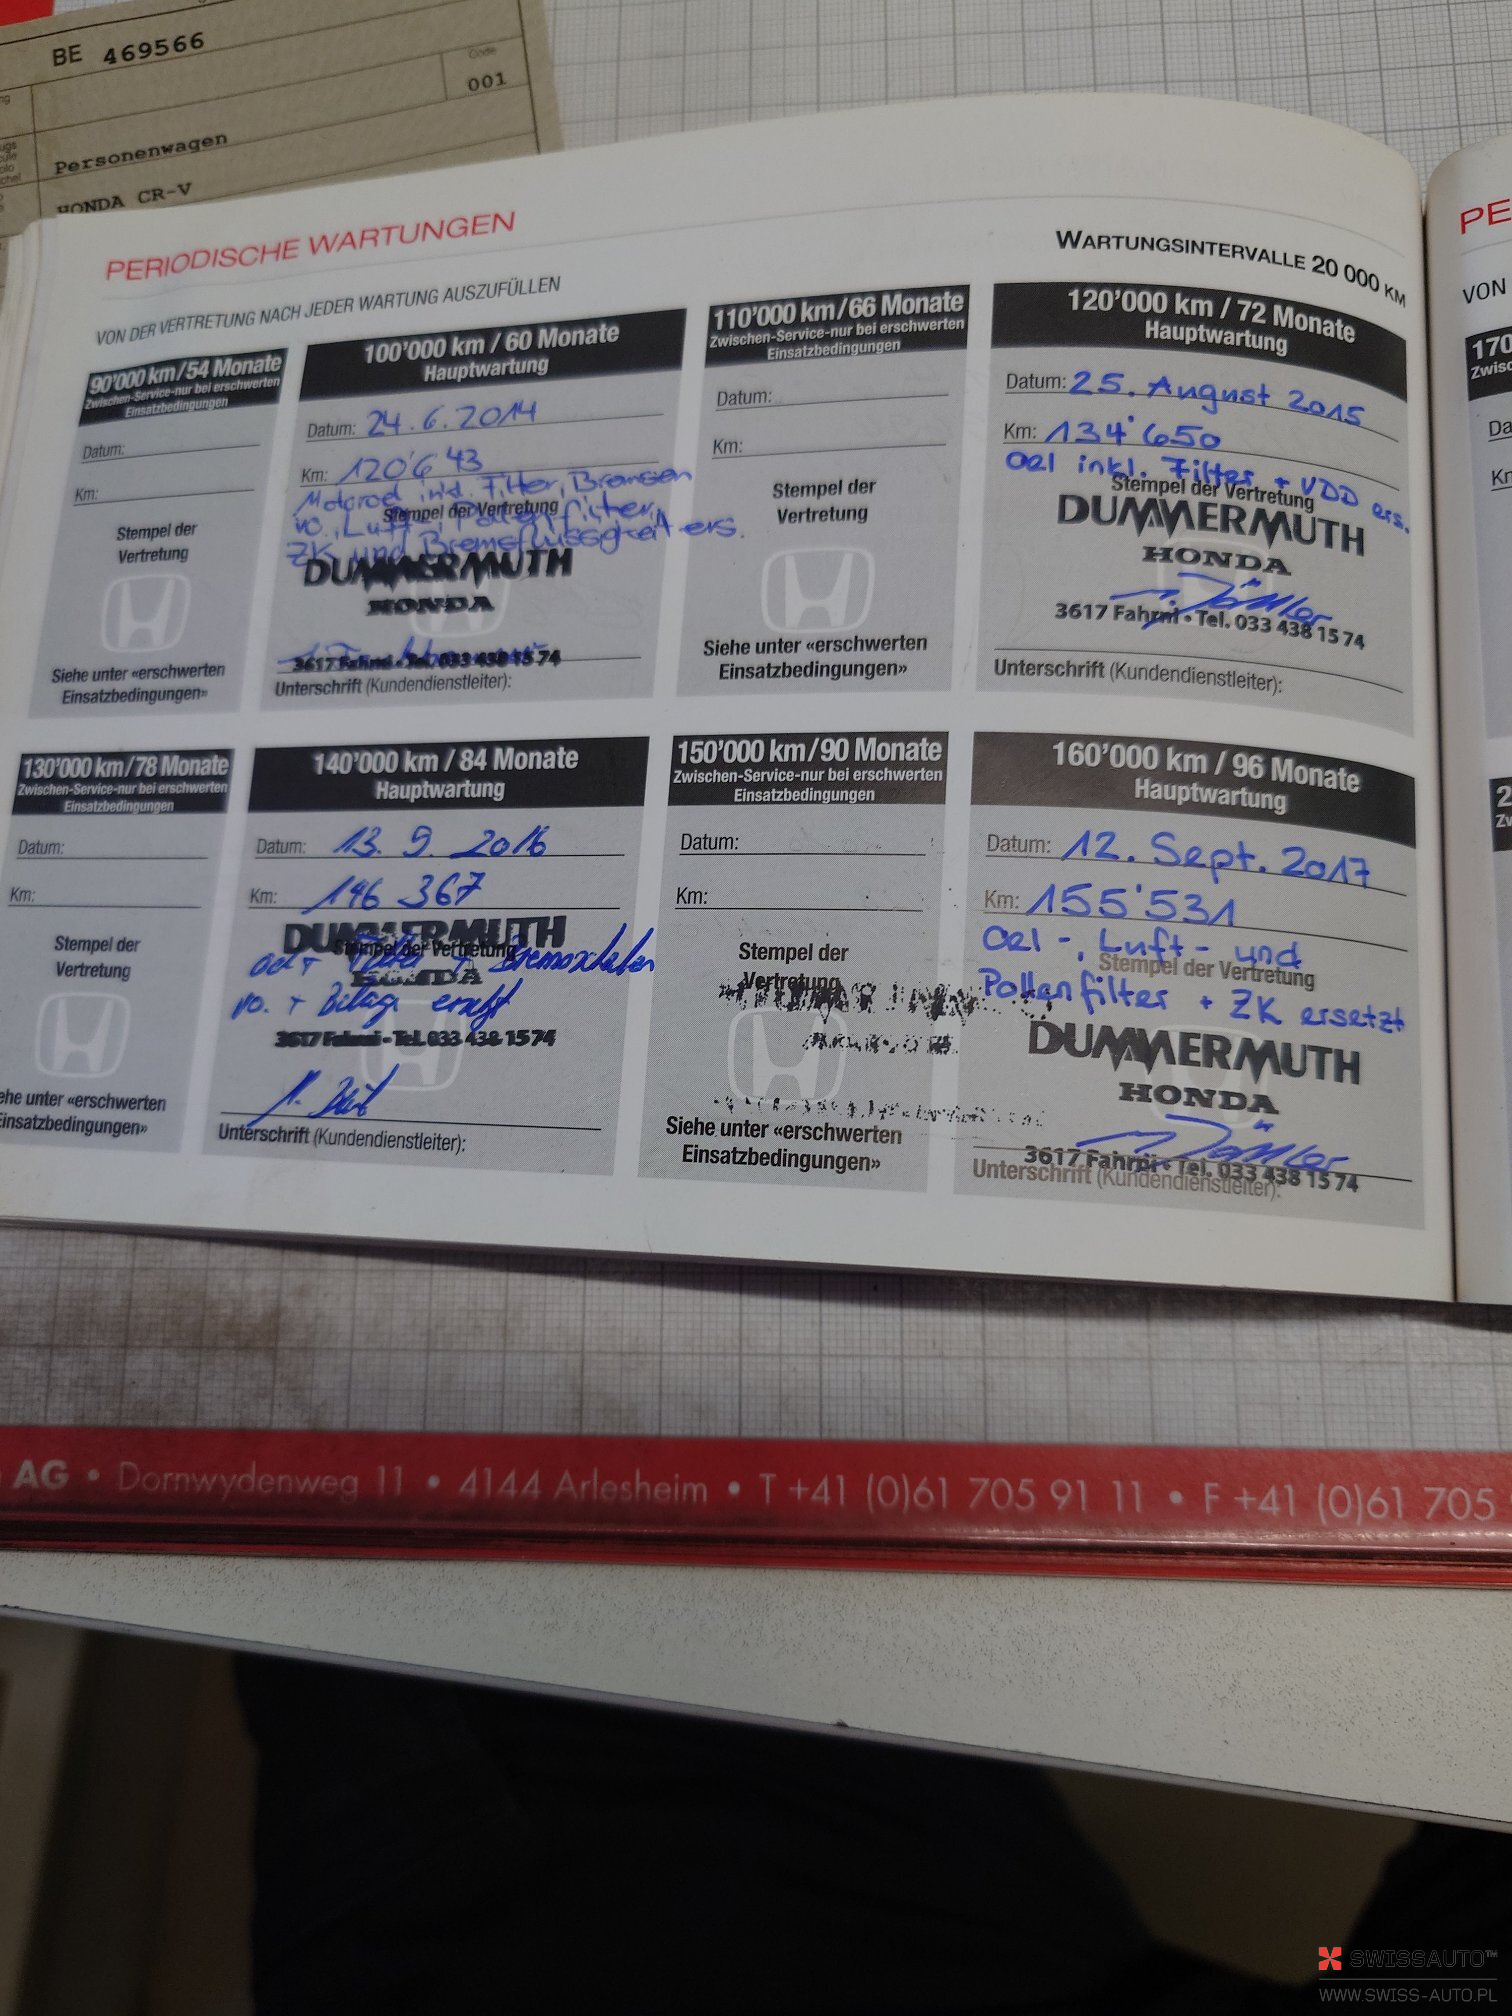 BE 469566
Code
001
Personenwagen
HONDA CR-V
PERIODISCHE WARTUNGEN
WARTUNGSINTERVALLE 20 000 KM
VON DER VERTRETUNG NACH JEDER WARTUNG AUSZUFÜLLEN
90'000 km/54 Monate
Zwischen-Service-nur bei erschwerten
Einsatzbedingungen
Datum:
Km:
Stempel der
Vertretung
Siehe unter «erschwerten
Einsatzbedingungen»
100'000 km / 60 Monate
Hauptwartung
Datum: 24.6.2014
Km: 120'643
Motoroel inkl. Filter, Bremsen
Stempel der Vertretung
vo., Luft-, Pollenfilter,
ZK und Bremsflüssigkeit ers.
DUMMERMUTH
HONDA
3617 Fahrni • Tel. 033 438 15 74
Unterschrift (Kundendienstleiter):
110'000 km/66 Monate
Zwischen-Service-nur bei erschwerten
Einsatzbedingungen
Datum:
Km:
Stempel der
Vertretung
Siehe unter «erschwerten
Einsatzbedingungen»
120'000 km / 72 Monate
Hauptwartung
Datum: 25. August 2015
Km: 134'650
Oel inkl. Filter + VDD ers.
Stempel der Vertretung
DUMMERMUTH
HONDA
3617 Fahrni • Tel. 033 438 15 74
Unterschrift (Kundendienstleiter):
130'000 km/78 Monate
Zwischen-Service-nur bei erschwerten
Einsatzbedingungen
Datum:
Km:
Stempel der
Vertretung
ehe unter «erschwerten
insatzbedingungen»
140'000 km / 84 Monate
Hauptwartung
Datum: 13. 9. 2016
Km: 146 367
DUMMERMUTH
Stempel der Vertretung
Oel + Filter + Bremsscheiben
HONDA
vo. + Beläge ersetzt
3617 Fahrni • Tel. 033 438 15 74
Unterschrift (Kundendienstleiter):
150'000 km/90 Monate
Zwischen-Service-nur bei erschwerten
Einsatzbedingungen
Datum:
Km:
Stempel der
Vertretung
Siehe unter «erschwerten
Einsatzbedingungen»
160'000 km / 96 Monate
Hauptwartung
Datum: 12. Sept. 2017
Km: 155'531
Oel-, Luft- und
Stempel der Vertretung
Pollenfilter + ZK ersetzt
DUMMERMUTH
HONDA
3617 Fahrni • Tel. 033 438 15 74
Unterschrift (Kundendienstleiter):
PE
VON
170
Zwisc
Da
Km
2
Zw
AG • Dornwydenweg 11 • 4144 Arlesheim • T +41 (0)61 705 91 11 • F +41 (0)61 705
SWISSAUTO™
WWW.SWISS-AUTO.PL